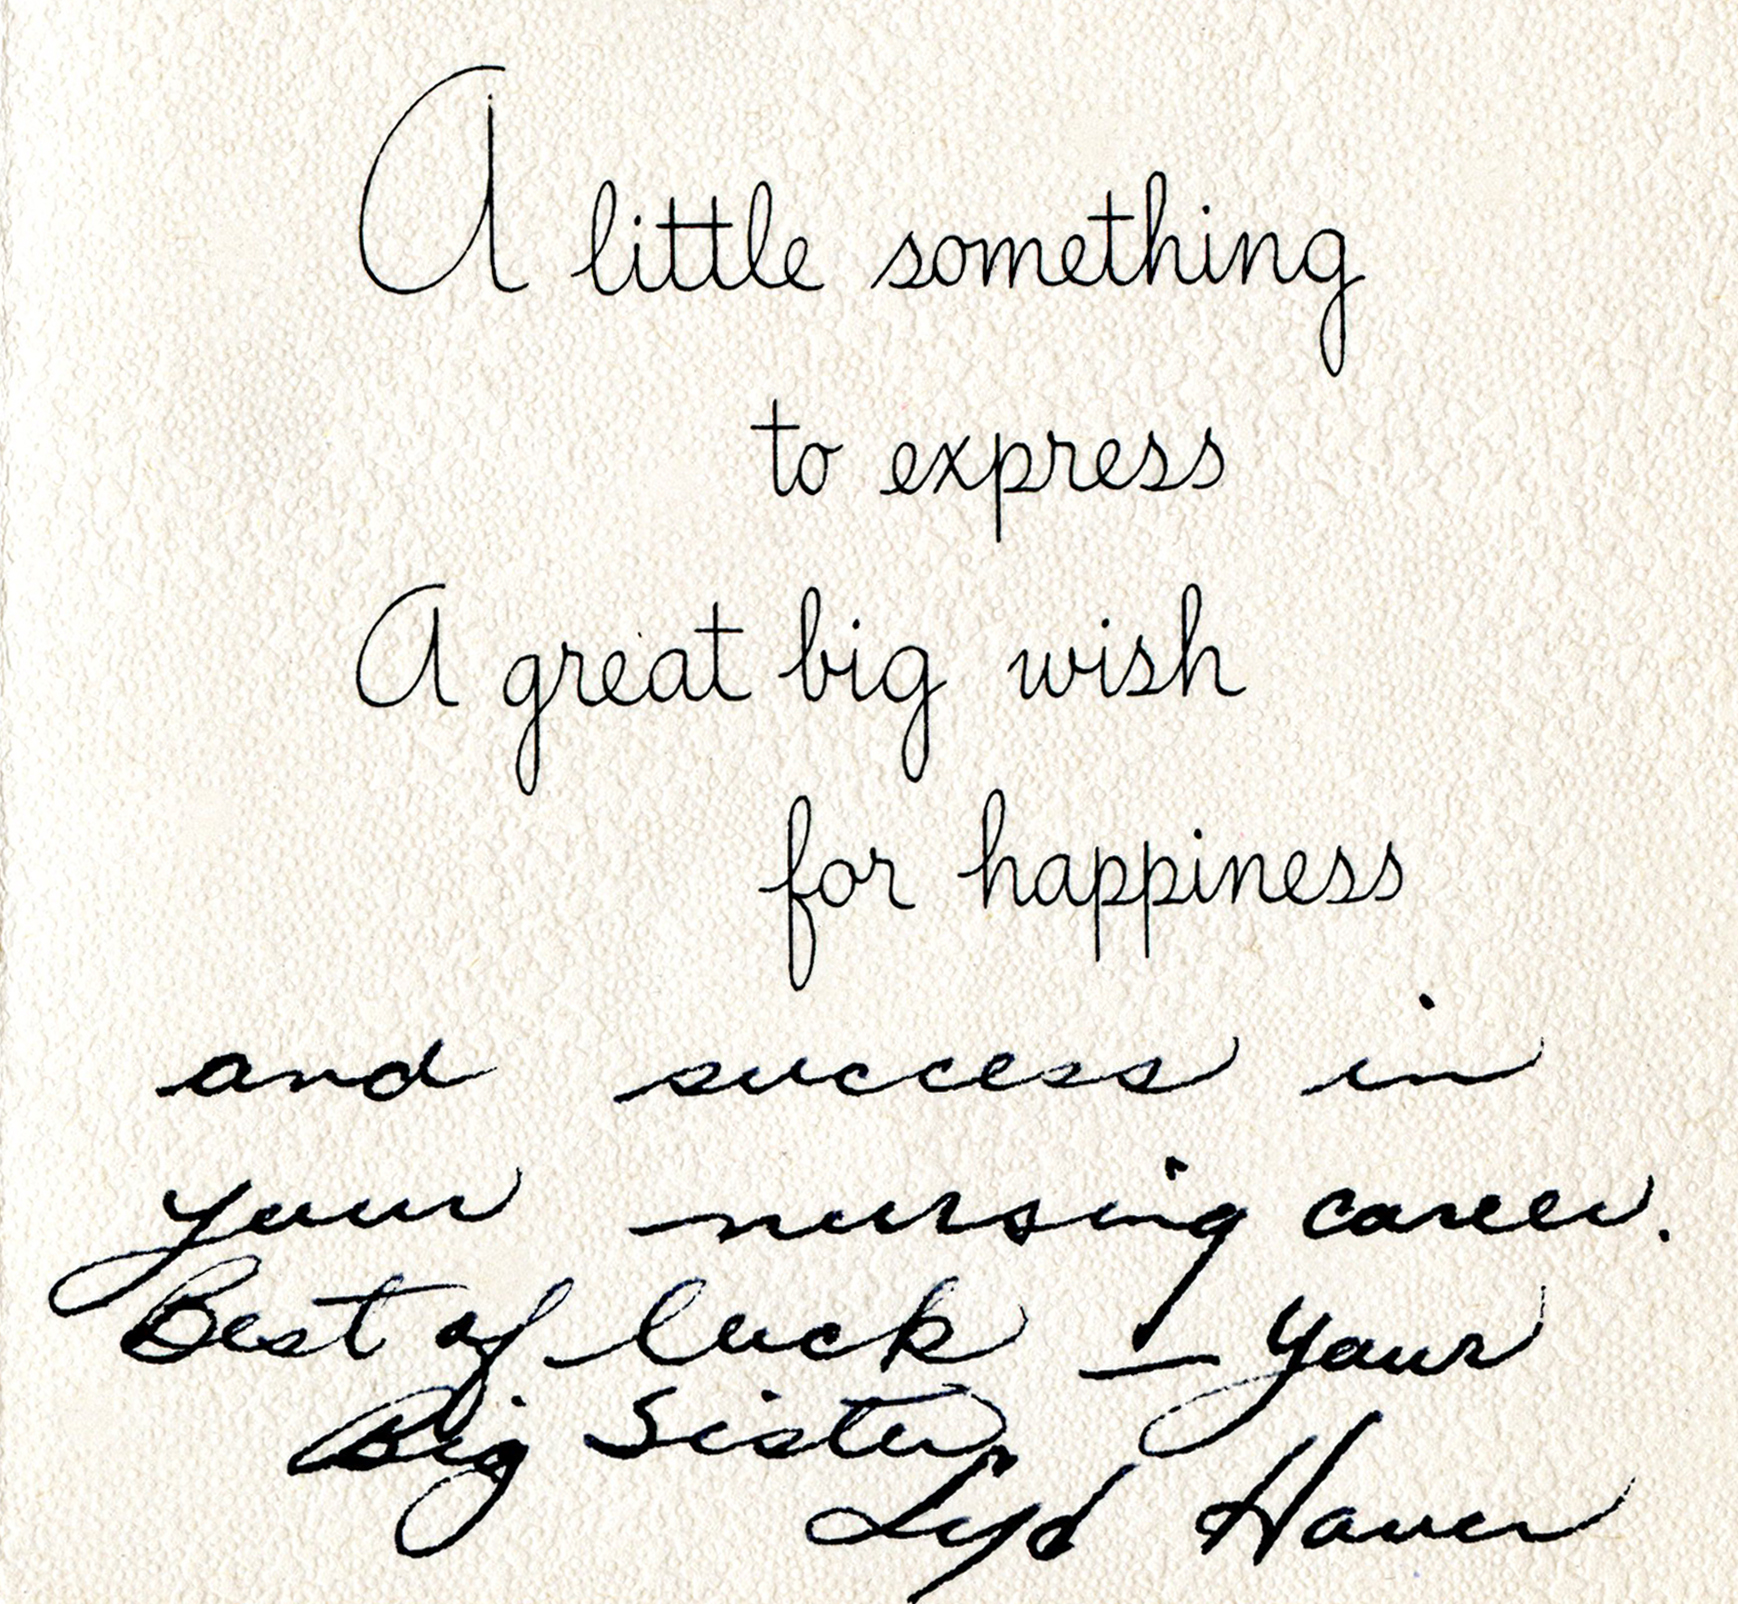 A little something
to express
A great big wish
for happiness
and success in
your nursing career.
Best of luck — Your
Big Sister,
Lyd Haver